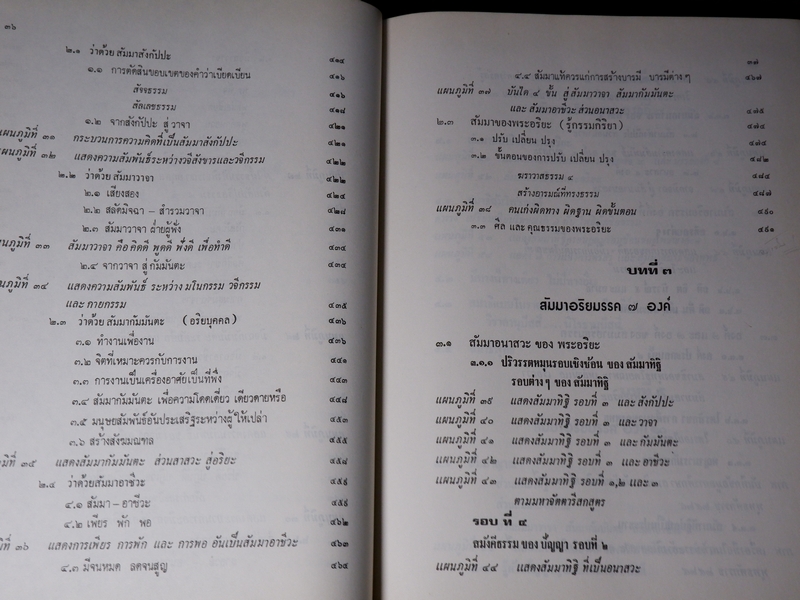 ๓๖
๒.๑ ว่าด้วย สัมมาสังกัปปะ ๔๑๔
๑.๑ การตัดสินขอบเขตของคำว่าเบียดเบียน ๔๑๖
สัจธรรม ๔๑๖
สัลเลขธรรม ๔๑๘
๑.๒ จากสังกัปปะ สู่ วาจา ๔๒๑
แผนภูมิที่ ๓๑ กระบวนการความคิดที่เป็นสัมมาสังกัปปะ ๔๒๑
แผนภูมิที่ ๓๒ แสดงความสัมพันธ์ระหว่างวจีสังขารและวจีกรรม ๔๒๒
๒.๒ ว่าด้วย สัมมาวาจา ๔๒๒
๒.๑ เสียงสอง ๔๒๔
๒.๒ สลัดมิจฉา – สำรวมวาจา ๔๒๘
๒.๓ สัมมาวาจา ฝ่ายผู้ฟัง ๔๓๑
แผนภูมิที่ ๓๓ สัมมาวาจา คือ คิดดี พูดดี ฟังดี เพื่อทำดี ๔๓๔
๒.๔ จากวาจา สู่ กัมมันตะ ๔๓๔
แผนภูมิที่ ๓๔ แสดงความสัมพันธ์ ระหว่าง มโนกรรม วจีกรรม
และ กายกรรม ๔๓๕
๒.๓ ว่าด้วย สัมมากัมมันตะ (อริยบุคคล) ๔๓๖
๓.๑ ทำงานเพื่องาน ๔๓๖
๓.๒ จิตที่เหมาะควรกับการงาน ๔๔๑
๓.๓ การงานเป็นเครื่องอาศัยเป็นที่พึ่ง ๔๔๓
๓.๔ สัมมากัมมันตะ เพื่อความโดดเดี่ยว เดียวดายหรือ ๔๔๘
๓.๕ มนุษยสัมพันธ์อันประเสริฐระหว่างผู้ให้เปล่า ๔๕๓
๓.๖ สร้างสังฆมณฑล ๔๕๕
แผนภูมิที่ ๓๕ แสดงสัมมากัมมันตะ ส่วนสาสวะ สู่อริยะ ๔๕๘
๒.๔ ว่าด้วยสัมมาอาชีวะ ๔๕๙
๔.๑ สัมมา – อาชีวะ ๔๕๙
๔.๒ เพียร พัก พอ ๔๖๒
แผนภูมิที่ ๓๖ แสดงการเพียร การพัก และ การพอ อันเป็นสัมมาอาชีวะ ๔๖๓
๔.๓ มีจนหมด ลดจนสูญ ๔๖๔
๓๗
๔.๔ สัมมาแท้ควรแก่การสร้างบารมี บารมีต่าง ๆ ๔๖๗
แผนภูมิที่ ๓๗ บันได ๔ ขั้น สู่ สัมมาวาจา สัมมากัมมันตะ
และ สัมมาอาชีวะ ส่วนอนาสวะ ๔๗๕
๒.๓ สัมมาของพระอริยะ (รู้กรรมกิริยา) ๔๗๔
๓.๑ ปรับ เปลี่ยน ปรุง ๔๗๔
๓.๒ ขั้นตอนของการปรับ เปลี่ยน ปรุง ๔๘๒
ฆราวาสธรรม ๔ ๔๘๔
สร้างอารมณ์ที่ทรงธรรม ๔๘๗
แผนภูมิที่ ๓๘ คนเก่งผิดทาง ผิดฐาน ผิดขั้นตอน ๔๙๐
๓.๓ ศีล และ คุณธรรมของพระอริยะ ๔๙๑
บทที่ ๓
สัมมาอริยมรรค ๗ องค์
๓.๑ สัมมาอนาสวะ ของ พระอริยะ
๓.๑.๑ ปริวรรตหมุนรอบเชิงซ้อน ของ สัมมาทิฐิ
รอบต่าง ๆ ของ สัมมาทิฐิ
แผนภูมิที่ ๓๙ แสดงสัมมาทิฐิ รอบที่ ๑ และสังกัปปะ
แผนภูมิที่ ๔๐ แสดงสัมมาทิฐิ รอบที่ ๑ และ วาจา
แผนภูมิที่ ๔๑ แสดงสัมมาทิฐิ รอบที่ ๑ และ กัมมันตะ
แผนภูมิที่ ๔๒ แสดงสัมมาทิฐิ รอบที่ ๑ และ อาชีวะ
แผนภูมิที่ ๔๓ แสดงสัมมาทิฐิ รอบที่ ๑,๒ และ ๓
ตามมหาจัตตารีสกสูตร
รอบ ที่ ๔
สมังคีธรรม ของ ปัญญา รอบที่ ๒
แผนภูมิที่ ๔๔ แสดงสัมมาทิฐิ ที่เป็นอนาสวะ